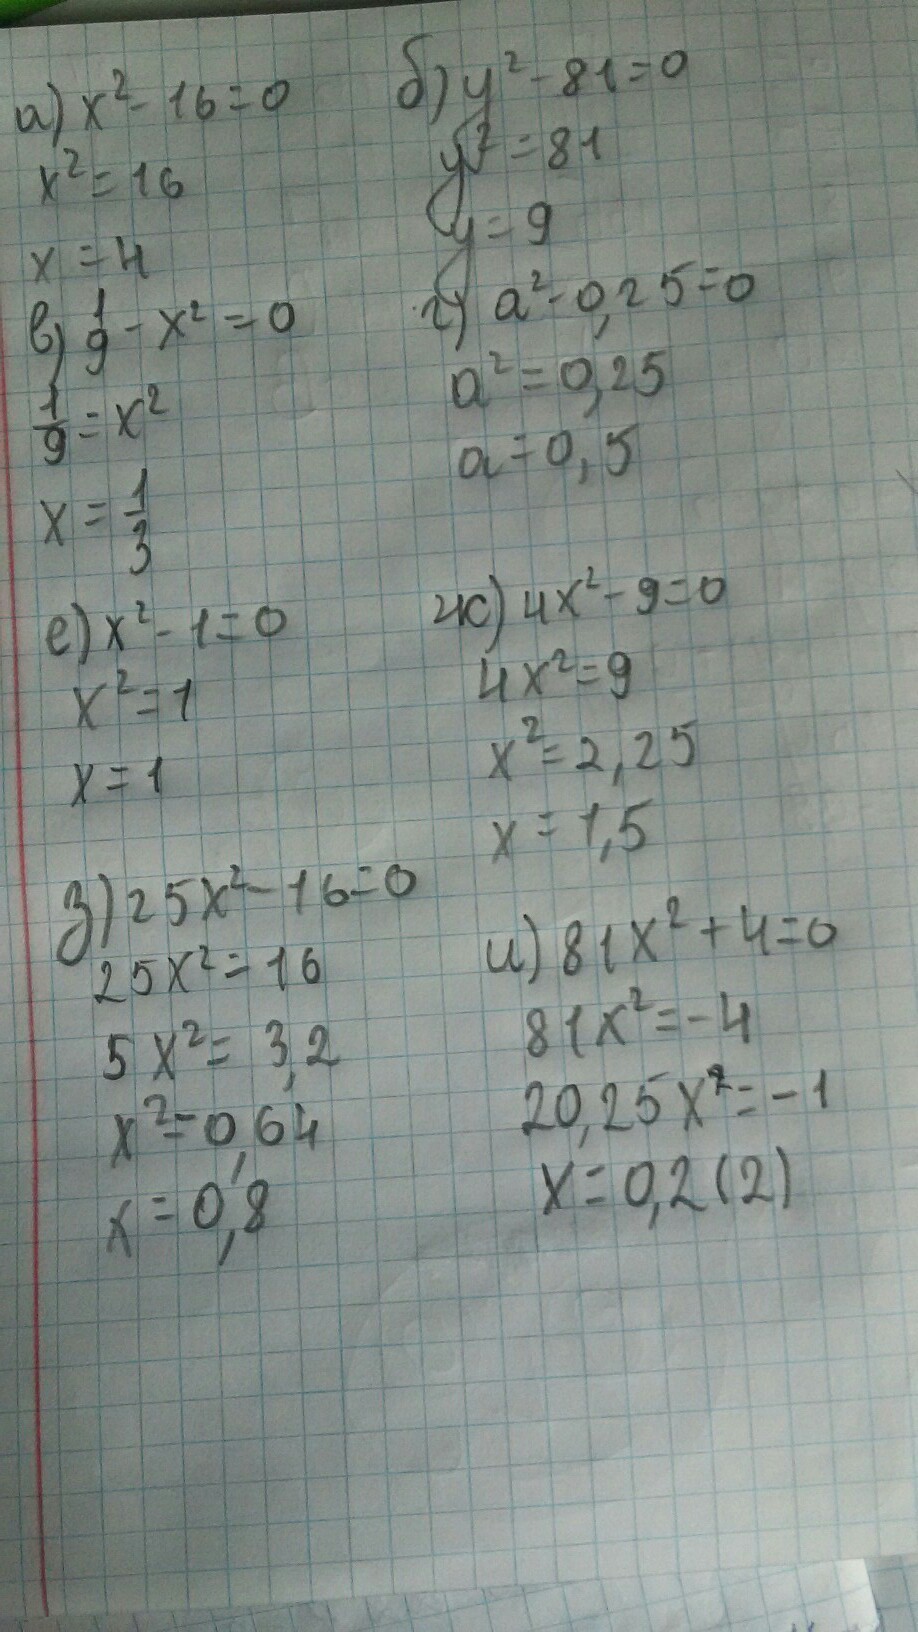 а) x² - 16 = 0
x² = 16
x = 4
б) y² - 81 = 0
y² = 81
y = 9
в) 1/9 - x² = 0
1/9 = x²
x = 1/3
г) a² - 0,25 = 0
a² = 0,25
a = 0,5
е) x² - 1 = 0
x² = 1
x = 1
ж) 4x² - 9 = 0
4x² = 9
x² = 2,25
x = 1,5
з) 25x² - 16 = 0
25x² = 16
5x² = 3,2
x² = 0,64
x = 0,8
и) 81x² + 4 = 0
81x² = -4
20,25x² = -1
x = 0,2(2)